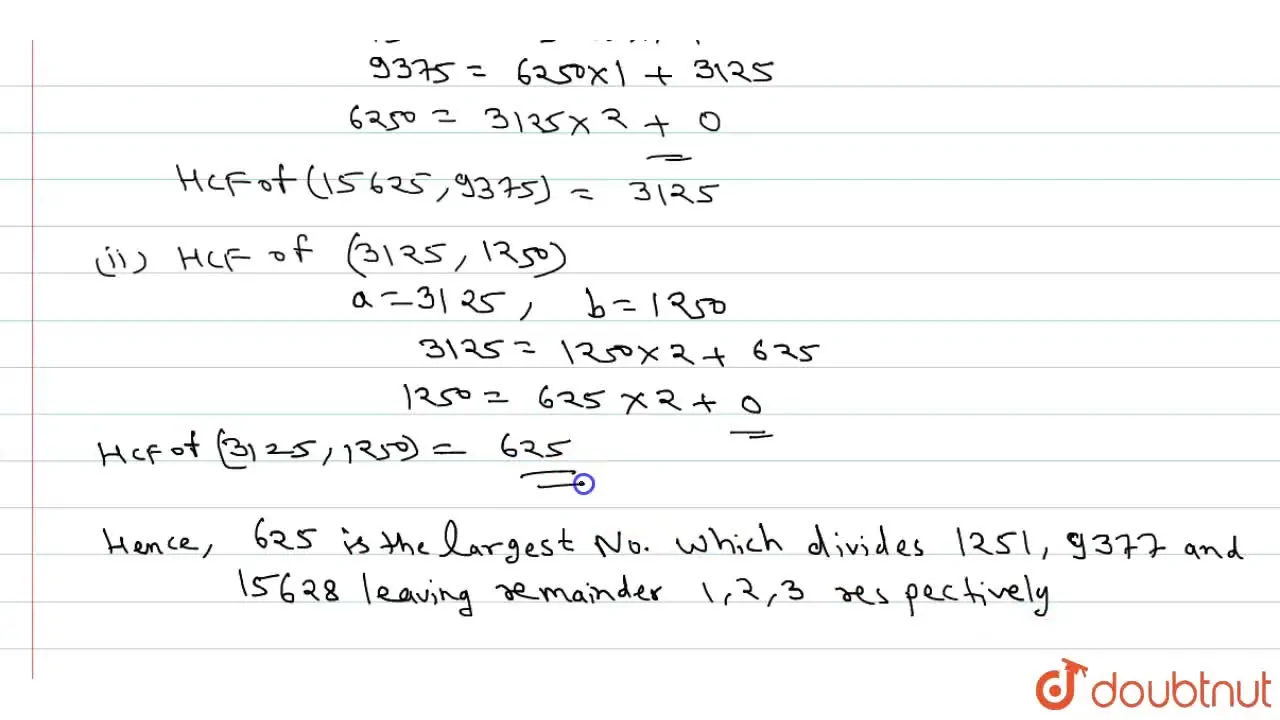 9375 = 6250 × 1 + 3125
6250 = 3125 × 2 + 0
HCF of (15625, 9375) = 3125
(ii) HCF of (3125, 1250)
a = 3125, b = 1250
3125 = 1250 × 2 + 625
1250 = 625 × 2 + 0
HCF of (3125, 1250) = 625
Hence, 625 is the largest No. which divides 1251, 9377 and
15628 leaving remainder 1, 2, 3 respectively
doubtnut